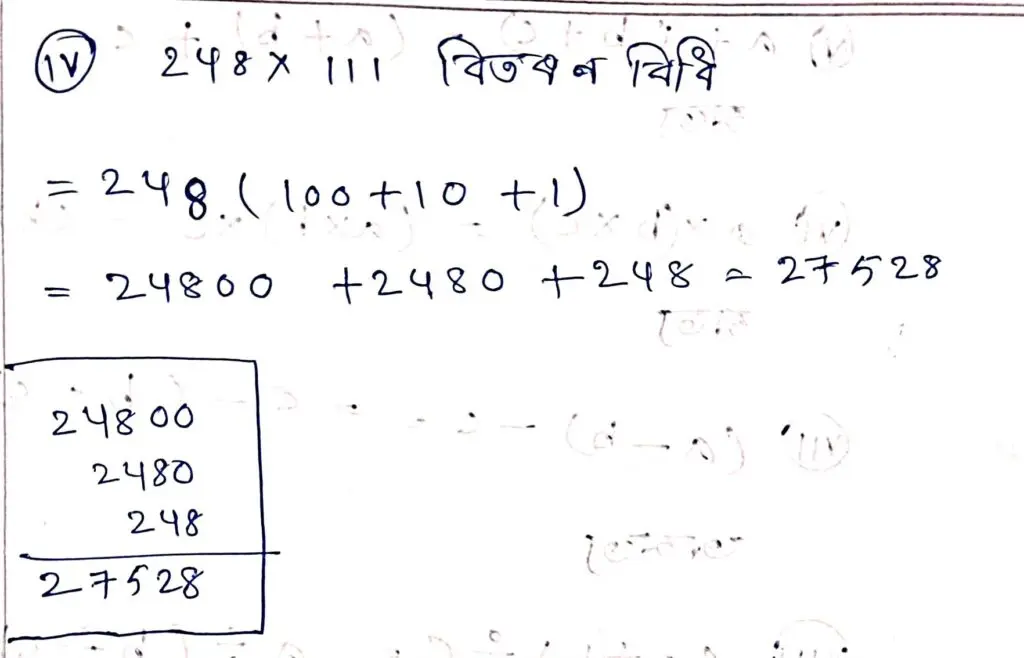 (iv) 248 × 111 বিতৰণ বিধি
= 248.(100 + 10 + 1)
= 24800 + 2480 + 248 = 27528
24800
2480
248
27528